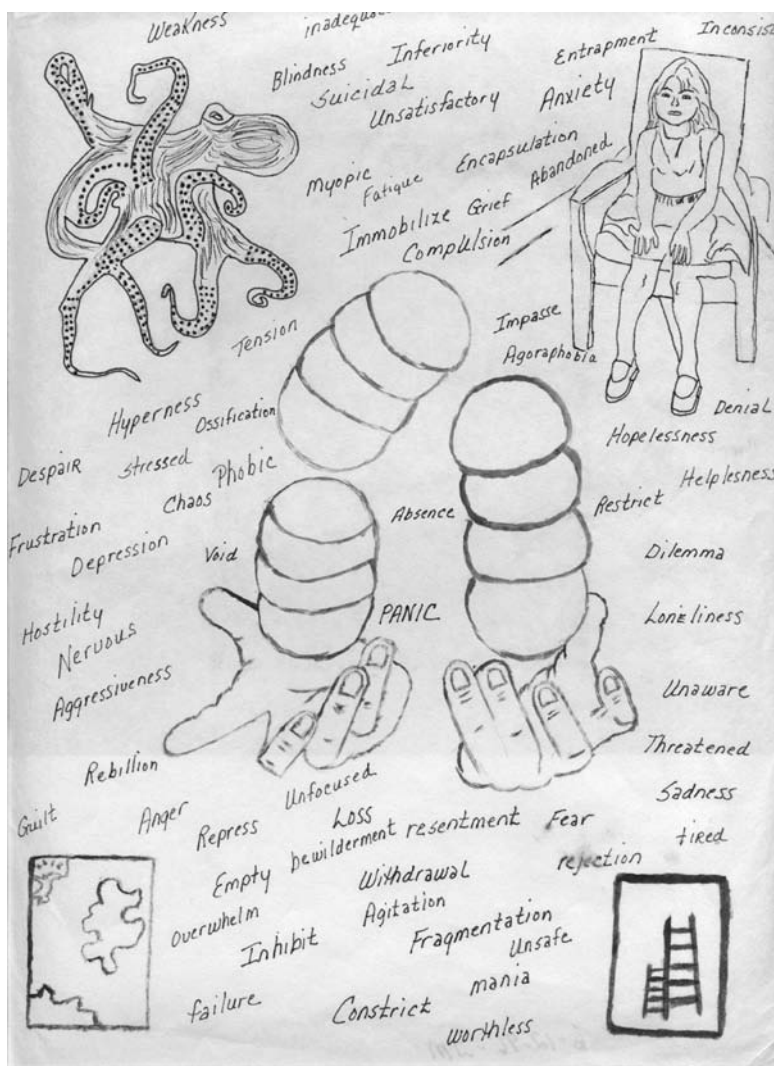 Weakness
Inferiority
Inconsis
Blindness
Entrapment
Suicidal
Unsatisfactory
Anxiety
Myopic
Fatique
Encapsulation
Abandoned
Immobilize
Grief
Compulsion
Tension
Impasse
Agoraphobia
Hyperness
Ossification
Denial
Hopelessness
Despair
stressed
Phobic
Helplesness
Frustration
Chaos
Absence
Restrict
Depression
Void
Dilemma
Hostility
PANIC
Lonliness
Nervous
Aggressiveness
Unaware
Threatened
Rebillion
Unfocused
Sadness
Guilt
Anger
Repress
Loss
bewilderment
resentment
Fear
tired
Empty
Withdrawal
rejection
overwhelm
Agitation
Inhibit
Fragmentation
Unsafe
failure
Constrict
mania
worthless